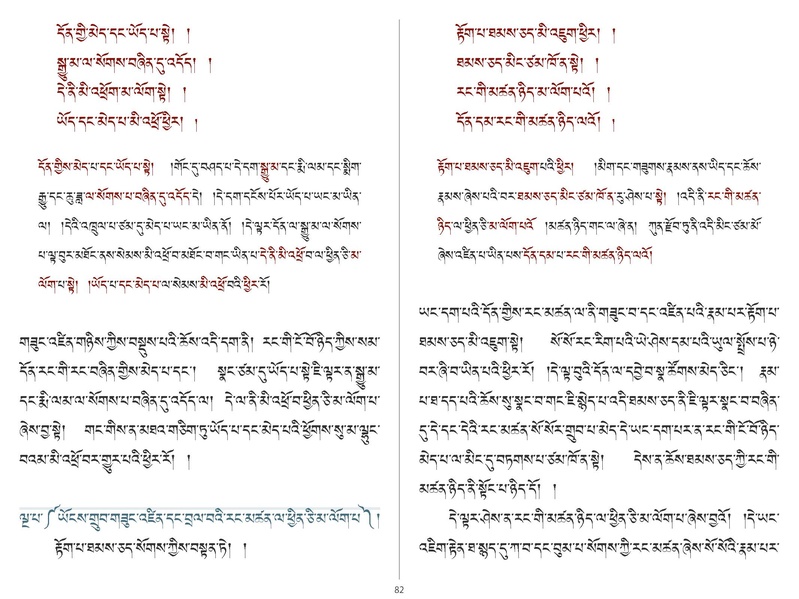 དོན་གྱི་མེད་དང་ཡོད་པ་སྟེ། །
སྒྱུ་མ་ལ་སོགས་བཞིན་དུ་འདོད། །
དེ་ནི་མི་འཕྲོག་མ་ལོག་སྟེ། །
ཡོད་དང་མེད་པ་མི་འཕྲོ་ཕྱིར། །
དོན་གྱིས་མེད་པ་དང་ཡོད་པ་སྟེ། །གོང་དུ་བཤད་པ་དེ་དག་སྒྱུ་མ་དང་རྨི་ལམ་དང་སྨིག་
རྒྱུ་དང་ཆུ་ཟླ་ལ་སོགས་པ་བཞིན་དུ་འདོད་དེ། །དེ་དག་དངོས་པོར་ཡོད་པ་ཡང་མ་ཡིན་
ལ། །དེའི་འཁྲུལ་པ་ཙམ་དུ་མེད་པ་ཡང་མ་ཡིན་ནོ། །དེ་ལྟར་དོན་ལ་སྒྱུ་མ་ལ་སོགས་
པ་ལྟ་བུར་མཐོང་ནས་སེམས་མི་འཕྲོ་བ་མཐོང་བ་གང་ཡིན་པ་དེ་ནི་མི་འཕྲོ་བ་ལ་ཕྱིན་ཅི་མ་
ལོག་པ་སྟེ། །ཡོད་པ་དང་མེད་པ་ལ་སེམས་མི་འཕྲོ་བའི་ཕྱིར་རོ།
གཟུང་འཛིན་གཉིས་ཀྱིས་བསྡུས་པའི་ཆོས་འདི་དག་ནི། རང་གི་ངོ་བོ་ཉིད་ཀྱིས་སམ་
དོན་རང་གི་རང་བཞིན་གྱིས་མེད་པ་དང་། སྣང་ཙམ་དུ་ཡོད་པ་སྟེ་ཇི་ལྟར་ན་སྒྱུ་མ་
དང་རྨི་ལམ་ལ་སོགས་པ་བཞིན་དུ་འདོད་ལ། དེ་ལ་ནི་མི་འཕྲོ་བ་ཕྱིན་ཅི་མ་ལོག་པ་
ཞེས་བྱ་སྟེ། གང་གིས་ན་མཐའ་གཅིག་ཏུ་ཡོད་པ་དང་མེད་པའི་ཕྱོགས་སུ་མ་ལྷུང་
བའམ་མི་འཕྲོ་བར་གྱུར་པའི་ཕྱིར་རོ། །
ལྔ་པ་ ༼ ཡོངས་གྲུབ་གཟུང་འཛིན་དང་བྲལ་བའི་རང་མཚན་ལ་ཕྱིན་ཅི་མ་ལོག་པ ༽ །
རྟོག་པ་ཐམས་ཅད་སོགས་ཀྱིས་བསྟན་ཏེ། །
རྟོག་པ་ཐམས་ཅད་མི་འཇུག་ཕྱིར། །
ཐམས་ཅད་མིང་ཙམ་ཁོ་ན་སྟེ། །
རང་གི་མཚན་ཉིད་མ་ལོག་པའོ། །
དོན་དམ་རང་གི་མཚན་ཉིད་ལའོ། །
རྟོག་པ་ཐམས་ཅད་མི་འཇུག་པའི་ཕྱིར། །མིག་དང་གཟུགས་རྣམས་ནས་ཡིད་དང་ཆོས་
རྣམས་ཞེས་པའི་བར་ཐམས་ཅད་མིང་ཙམ་ཁོ་ན་རུ་ཤེས་པ་སྟེ། །འདི་ནི་རང་གི་མཚན་
ཉིད་ལ་ཕྱིན་ཅི་མ་ལོག་པའོ །མཚན་ཉིད་གང་ལ་ཞེ་ན། ཀུན་རྫོབ་ཏུ་ནི་འདི་མིང་ཙམ་མོ་
ཞེས་འཛིན་པ་ཡིན་པས་དོན་དམ་པ་རང་གི་མཚན་ཉིད་ལའོ།
ཡང་དག་པའི་དོན་གྱིས་རང་མཚན་ལ་ནི་གཟུང་བ་དང་འཛིན་པའི་རྣམ་པར་རྟོག་པ་
ཐམས་ཅད་མི་འཇུག་སྟེ། སོ་སོ་རང་རིག་པའི་ཡེ་ཤེས་དམ་པའི་ཡུལ་སྤྲོས་པ་ཉེ་
བར་ཞི་བ་ཡིན་པའི་ཕྱིར་རོ། །དེ་ལྟ་བུའི་དོན་ལ་དབྱེ་བ་སྣ་ཚོགས་མེད་ཅིང་། རྣམ་
པ་ཐ་དད་པའི་ཆོས་སུ་སྣང་བ་གང་ཇི་སྙེད་པ་འདི་ཐམས་ཅད་ནི་ཇི་ལྟར་སྣང་བ་བཞིན་
དུ་དེ་དང་དེའི་རང་མཚན་སོ་སོར་གྲུབ་པ་མེད་དེ་ཡང་དག་པར་ན་རང་གི་ངོ་བོ་ཉིད་
མེད་པ་ལ་མིང་དུ་བཏགས་པ་ཙམ་ཁོ་ན་སྟེ། དེས་ན་ཆོས་ཐམས་ཅད་ཀྱི་རང་གི་
མཚན་ཉིད་ནི་སྟོང་པ་ཉིད་དོ། །
དེ་ལྟར་ཤེས་ན་རང་གི་མཚན་ཉིད་ལ་ཕྱིན་ཅི་མ་ལོག་པ་ཞེས་བྱའོ། །དེ་ཡང་
འཇིག་རྟེན་ཐ་སྙད་དུ་ཀ་བ་དང་བུམ་པ་སོགས་ཀྱི་རང་མཚན་ཞེས་སོ་སོའི་རྣམ་པར་
82